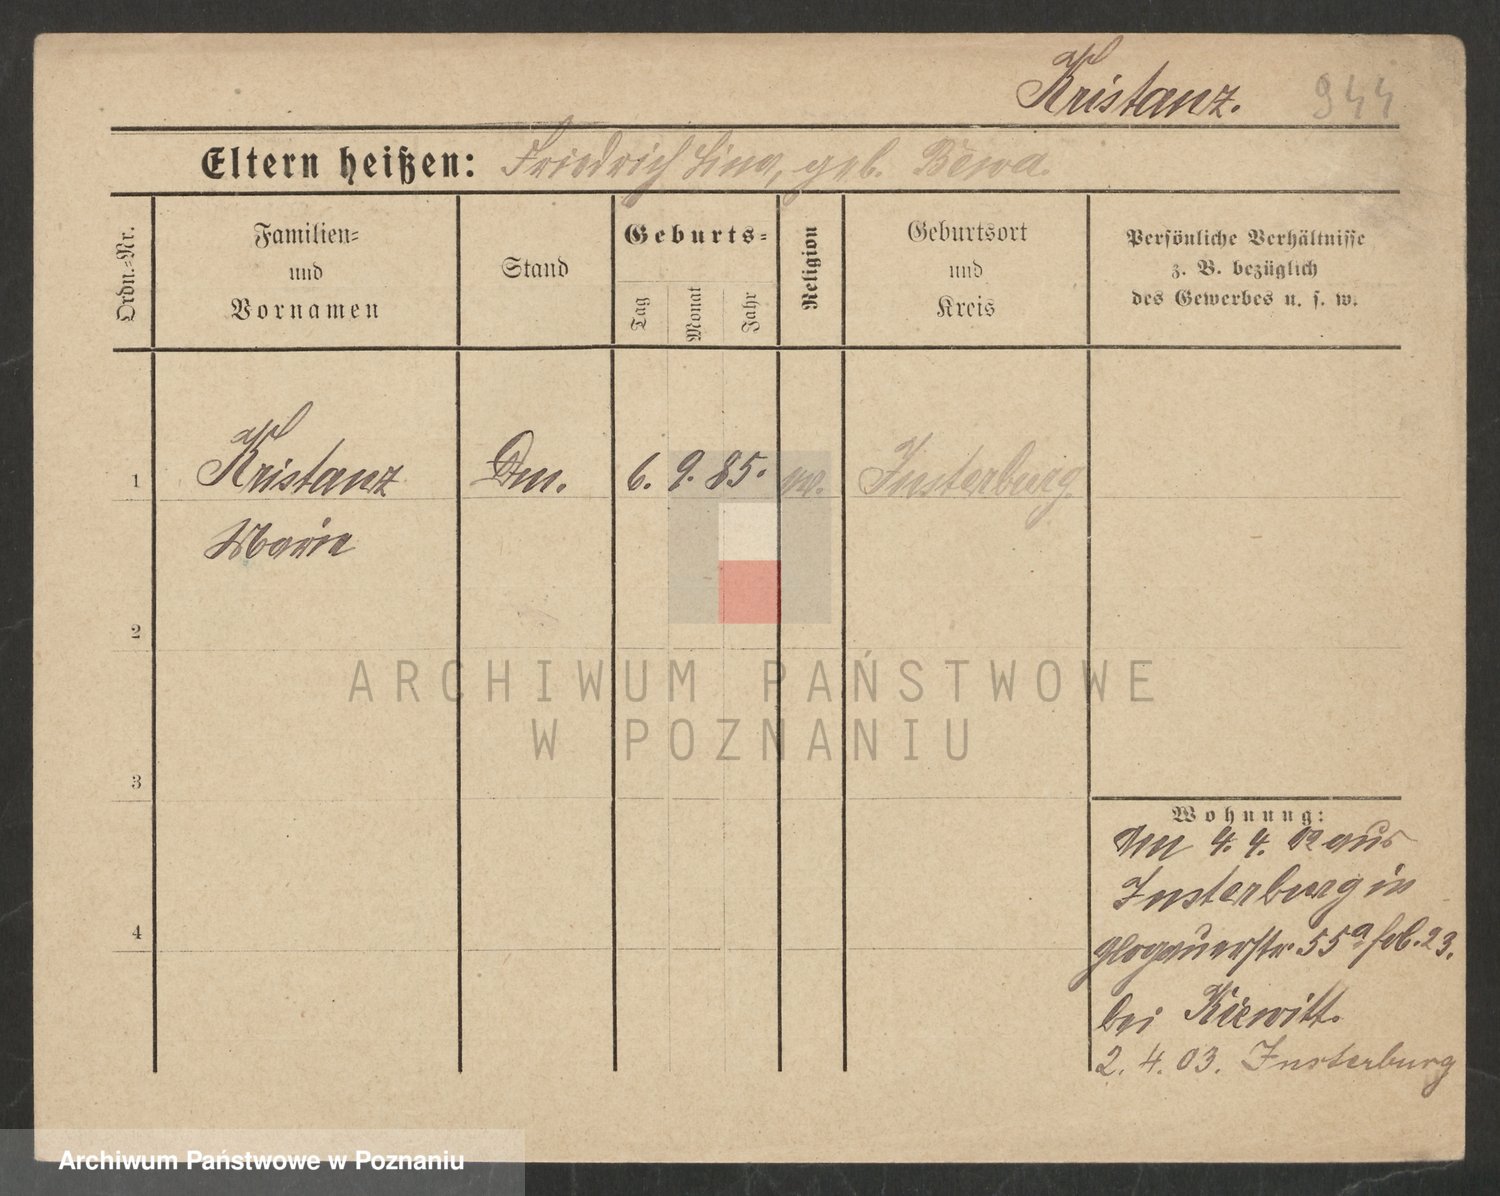 Kristanz. 944
Eltern heißen: Friedrich Lina, geb. Bewa.
Ordn.-Nr.
Familien-
und
Vornamen
Stand
Geburts-
Tag
Monat
Jahr
Religion
Geburtsort
und
Kreis
Persönliche Verhältnisse
z. B. bezüglich
des Gewerbes u. s. w.
1 Kristanz 6. 9. 85. Insterburg
Marie
2
3
4
Wohnung:
4. 4. 02 aus
Insterburg in
Glogauerstr. 55a 23.
bei Kiewitt.
2. 4. 03. Insterburg
ARCHIWUM PAŃSTWOWE
W POZNANIU
Archiwum Państwowe w Poznaniu